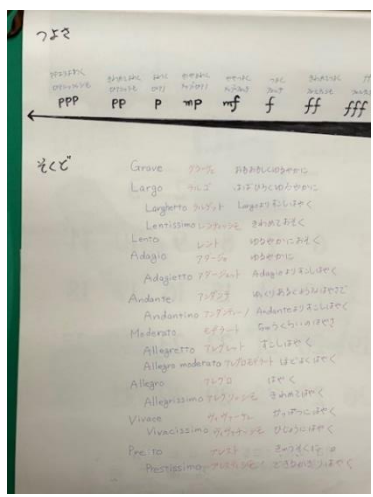 つよさ
ppp pp p mp mf f ff fff
そくど
Grave グラーヴェ おもおもしくゆるやかに
Largo ラルゴ はばひろくゆるやかに
Larghetto ラルゲット Largoよりすこしはやく
Lentissimo レンティッシモ きわめておそく
Lento レント ゆるやかにおそく
Adagio アダージョ ゆるやかに
Adagietto アダージェット Adagioよりすこしはやく
Andante アンダンテ ゆっくりあるくようなはやさで
Andantino アンダンティーノ Andanteよりすこしはやく
Moderato モデラート ちゅうくらいのはやさ
Allegretto アレグレット すこしはやく
Allegro moderato アレグロモデラート ほどよくはやく
Allegro アレグロ はやく
Allegrissimo アレグリッシモ きわめてはやく
Vivace ヴィヴァーチェ かっぱつにはやく
Vivacissimo ヴィヴァチッシモ ひじょうにはやく
Presto プレスト
Prestissimo プレスティッシモ できるかぎりはやく